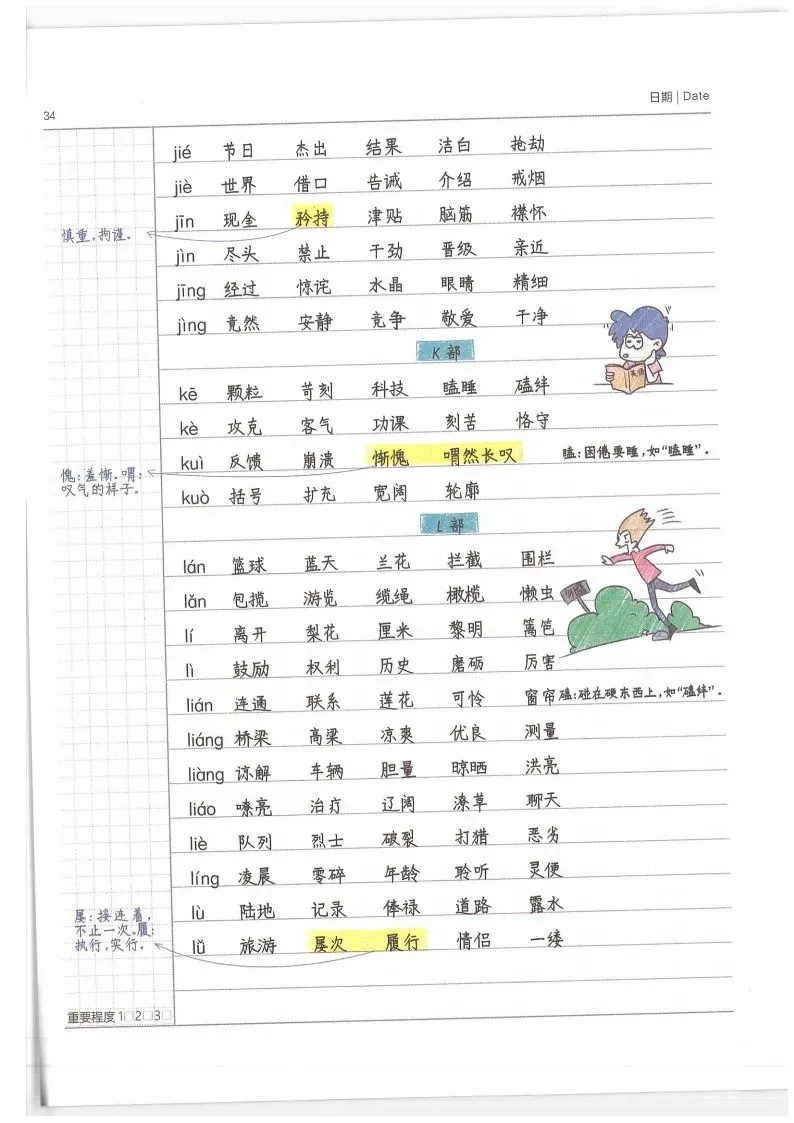 日期 | Date
34
jié 节日 杰出 结果 洁白 抢劫
jiè 世界 借口 告诫 介绍 戒烟
jīn 现金 矜持 津贴 脑筋 襟怀
慎重,拘谨。
jìn 尽头 禁止 干劲 晋级 亲近
jīng 经过 惊诧 水晶 眼睛 精细
jìng 竟然 安静 竞争 敬爱 干净
K部
kē 颗粒 苛刻 科技 瞌睡 磕绊
kè 攻克 客气 功课 刻苦 恪守
kuì 反馈 崩溃 惭愧 喟然长叹 瞌:困倦要睡,如“瞌睡”。
愧:羞惭。喟:
叹气的样子。
kuò 括号 扩充 宽阔 轮廓
L部
lán 篮球 蓝天 兰花 拦截 围栏
lǎn 包揽 游览 缆绳 橄榄 懒虫
lí 离开 梨花 厘米 黎明 篱笆
lì 鼓励 权利 历史 磨砺 厉害
lián 连通 联系 莲花 可怜 窗帘 磕:碰在硬东西上,如“磕绊”。
liáng 桥梁 高粱 凉爽 优良 测量
liàng 谅解 车辆 胆量 晾晒 洪亮
liáo 嘹亮 治疗 辽阔 潦草 聊天
liè 队列 烈士 破裂 打猎 恶劣
líng 凌晨 零碎 年龄 聆听 灵便
lù 陆地 记录 俸禄 道路 露水
屡:接连着,
不止一次。履:
执行,实行。
lǚ 旅游 屡次 履行 情侣 一缕
重要程度 1□2□3□